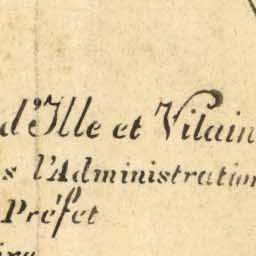 d'Ille et Vilain
s l'Administration
Préfet